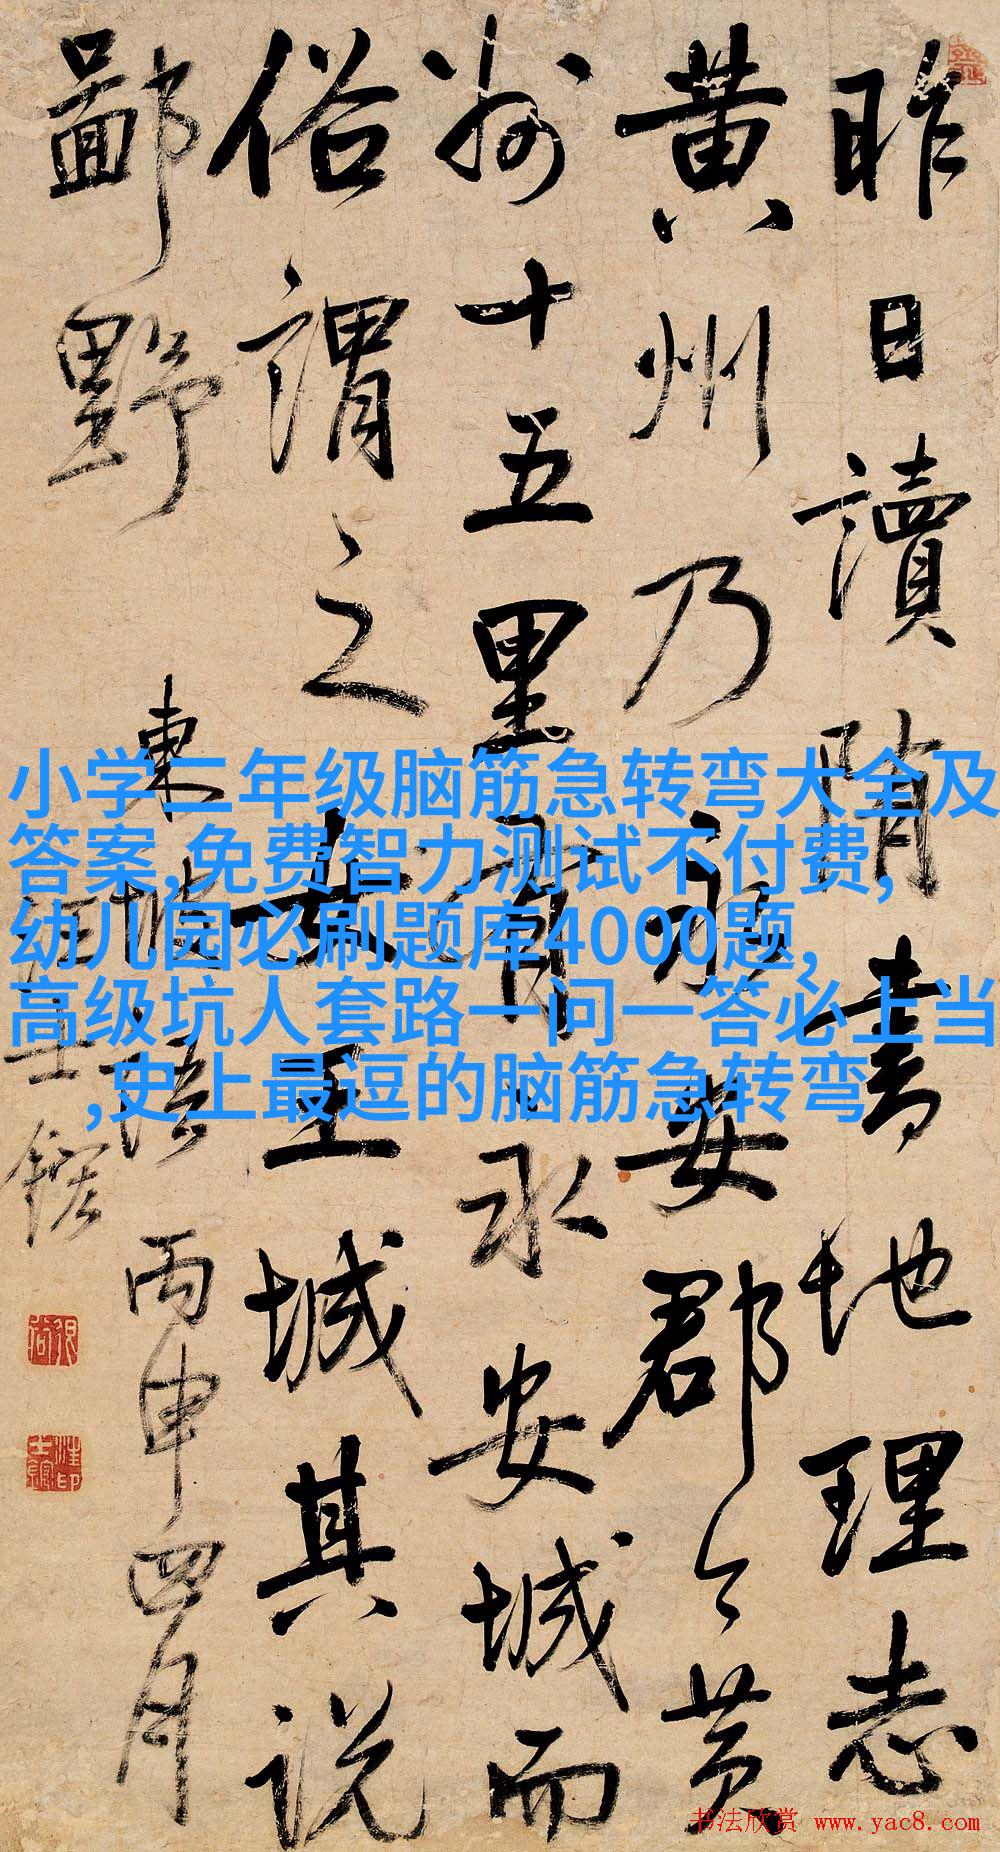 昨日讀隋書地理志
黃州乃永安郡今黃
州十五里有永安城而
俗謂之女王城其說
鄙野
東坡語 丙申四月
汪士鋐
小学二年级脑筋急转弯大全及
答案,免费智力测试不付费,
幼儿园必刷题库4000题,
高级坑人套路一问一答必上当
,史上最逗的脑筋急转弯
书法欣赏 www.yac8.com